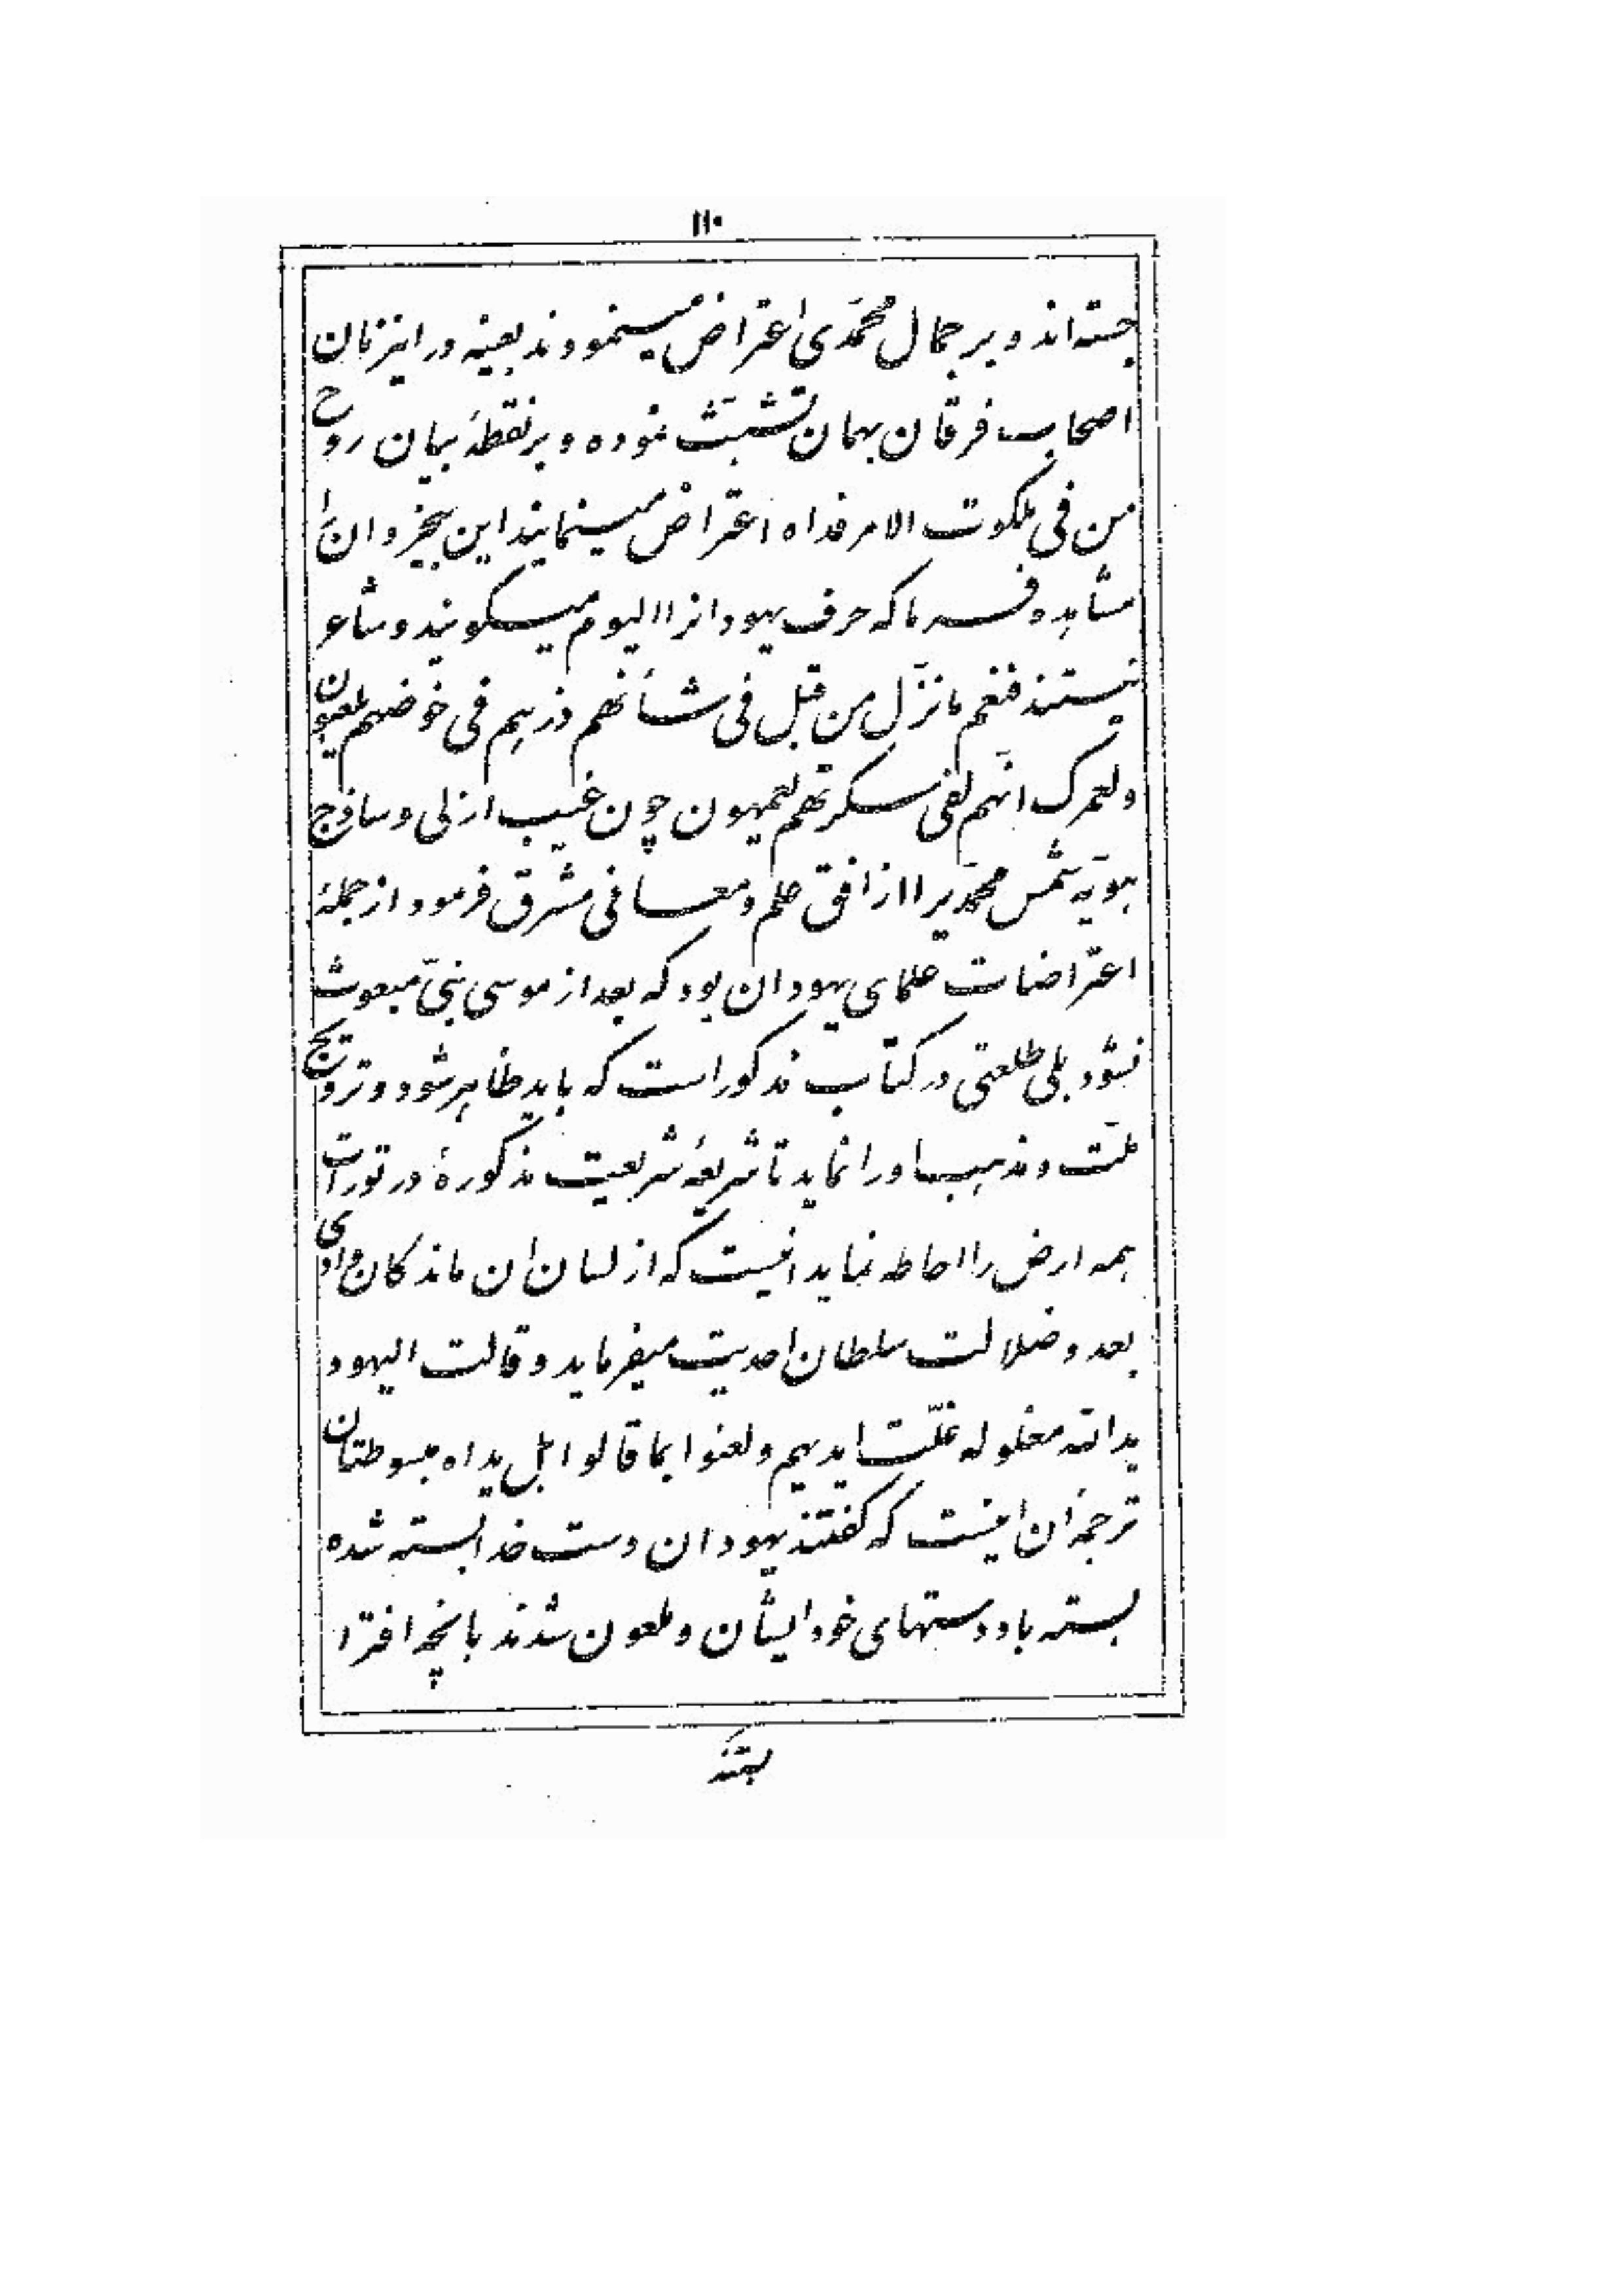 ۱۱۰
جسته‌اند و بر جمال محمّدی اعتراض مینمودند بعینه در اینزمان
اصحاب فرقان بهمان تشبّث نموده و بر نقطهٔ بیان روح
من فی ملکوت الامر فداه اعتراض مینمایند این بیخبردان را
مشاهده فرما که حرف یهود انرا الیوم میگویند و شاعر
نیستند فنعم ما نزّل من قبل فی شأنهم ذرهم فی خوضهم یلعبون
و لعمرک انّهم لفی سکرتهم یعمهون چون غیب ازلی و ساذج
هویّه شمس محمّدیرا از افق علم و معانی مشرق فرمود از جملهٔ
اعتراضات علمای یهود ان بود که بعد از موسی نبیّ مبعوث
نشود بلی طلعتی در کتاب مذکور است که باید ظاهر شود و ترویج
ملّت و مذهب او را نماید تا شریعهٔ شریعت مذکورهٔ در تورات
همه ارض را احاطه نماید اینست که از لسان ان ماندکان وادی
بعد و ضلالت سلطان احدیت میفرماید و قالت الیهود
یدالله مغلوله غلّت ایدیهم و لعنوا بما قالوا بل یداه مبسوطتان
ترجمهٔ ان اینست که کفتند یهودان دست خدا بسته شده
بسته باد دستهای خود ایشان و ملعون شدند بانچه افترا
بستند